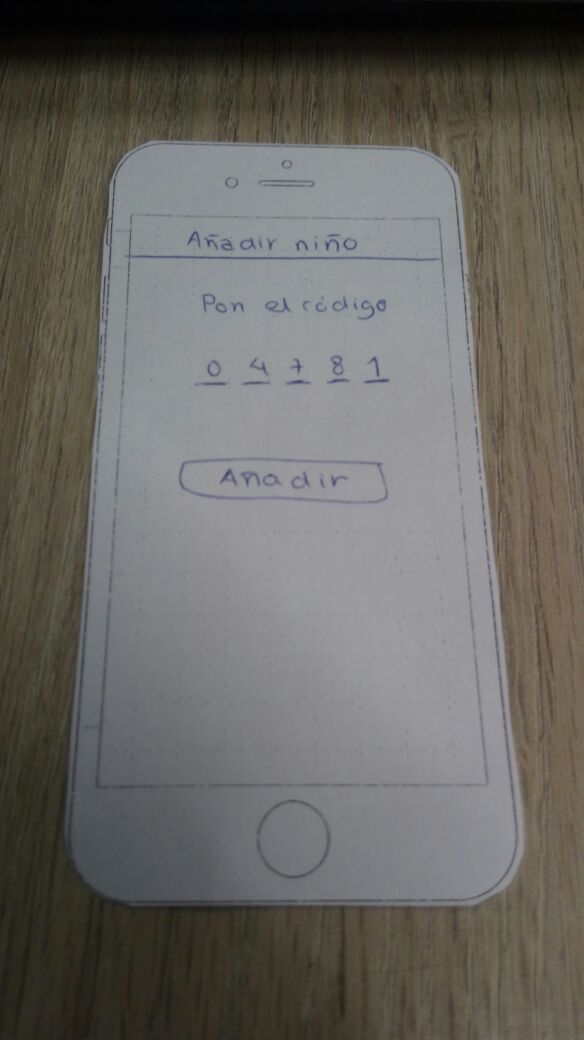 Añadir niño
Pon el código
0 4 7 8 1
Añadir